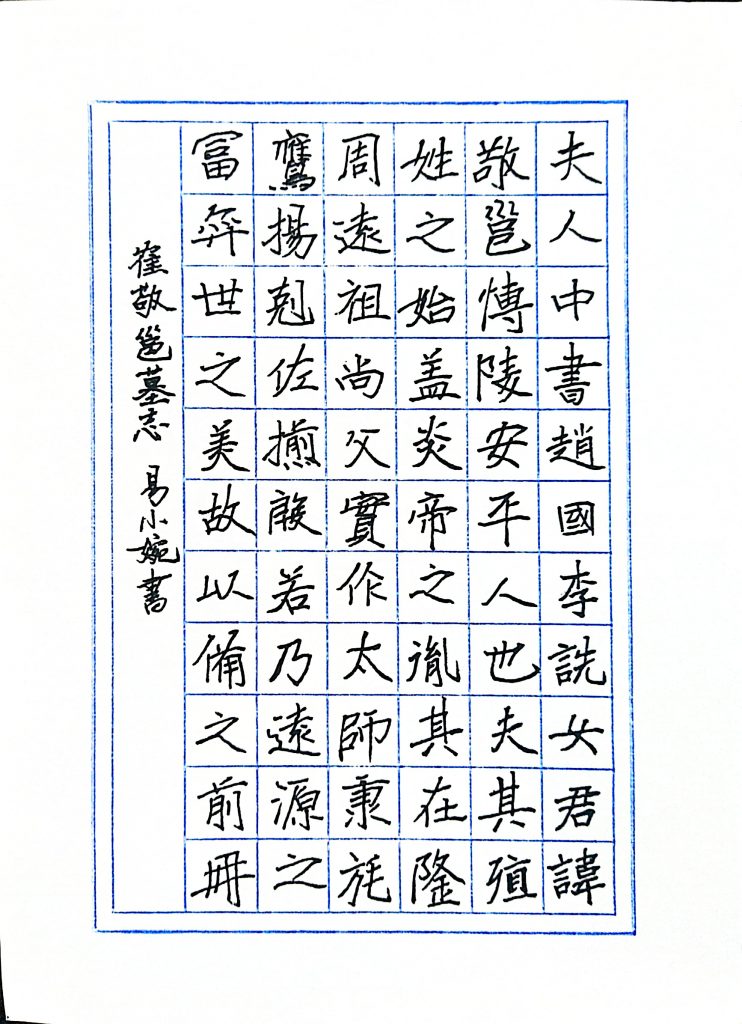 夫人中書趙國李詵女君諱
敬邕愽陵安平人也夫其殖
姓之始盖炎帝之胤其在隆
周遠祖尚父實作太師秉旄
鷹揚剋佐揃殷若乃遠源之
冨弈世之美故以俻之前冊
崔敬邕墓志 易小婉書